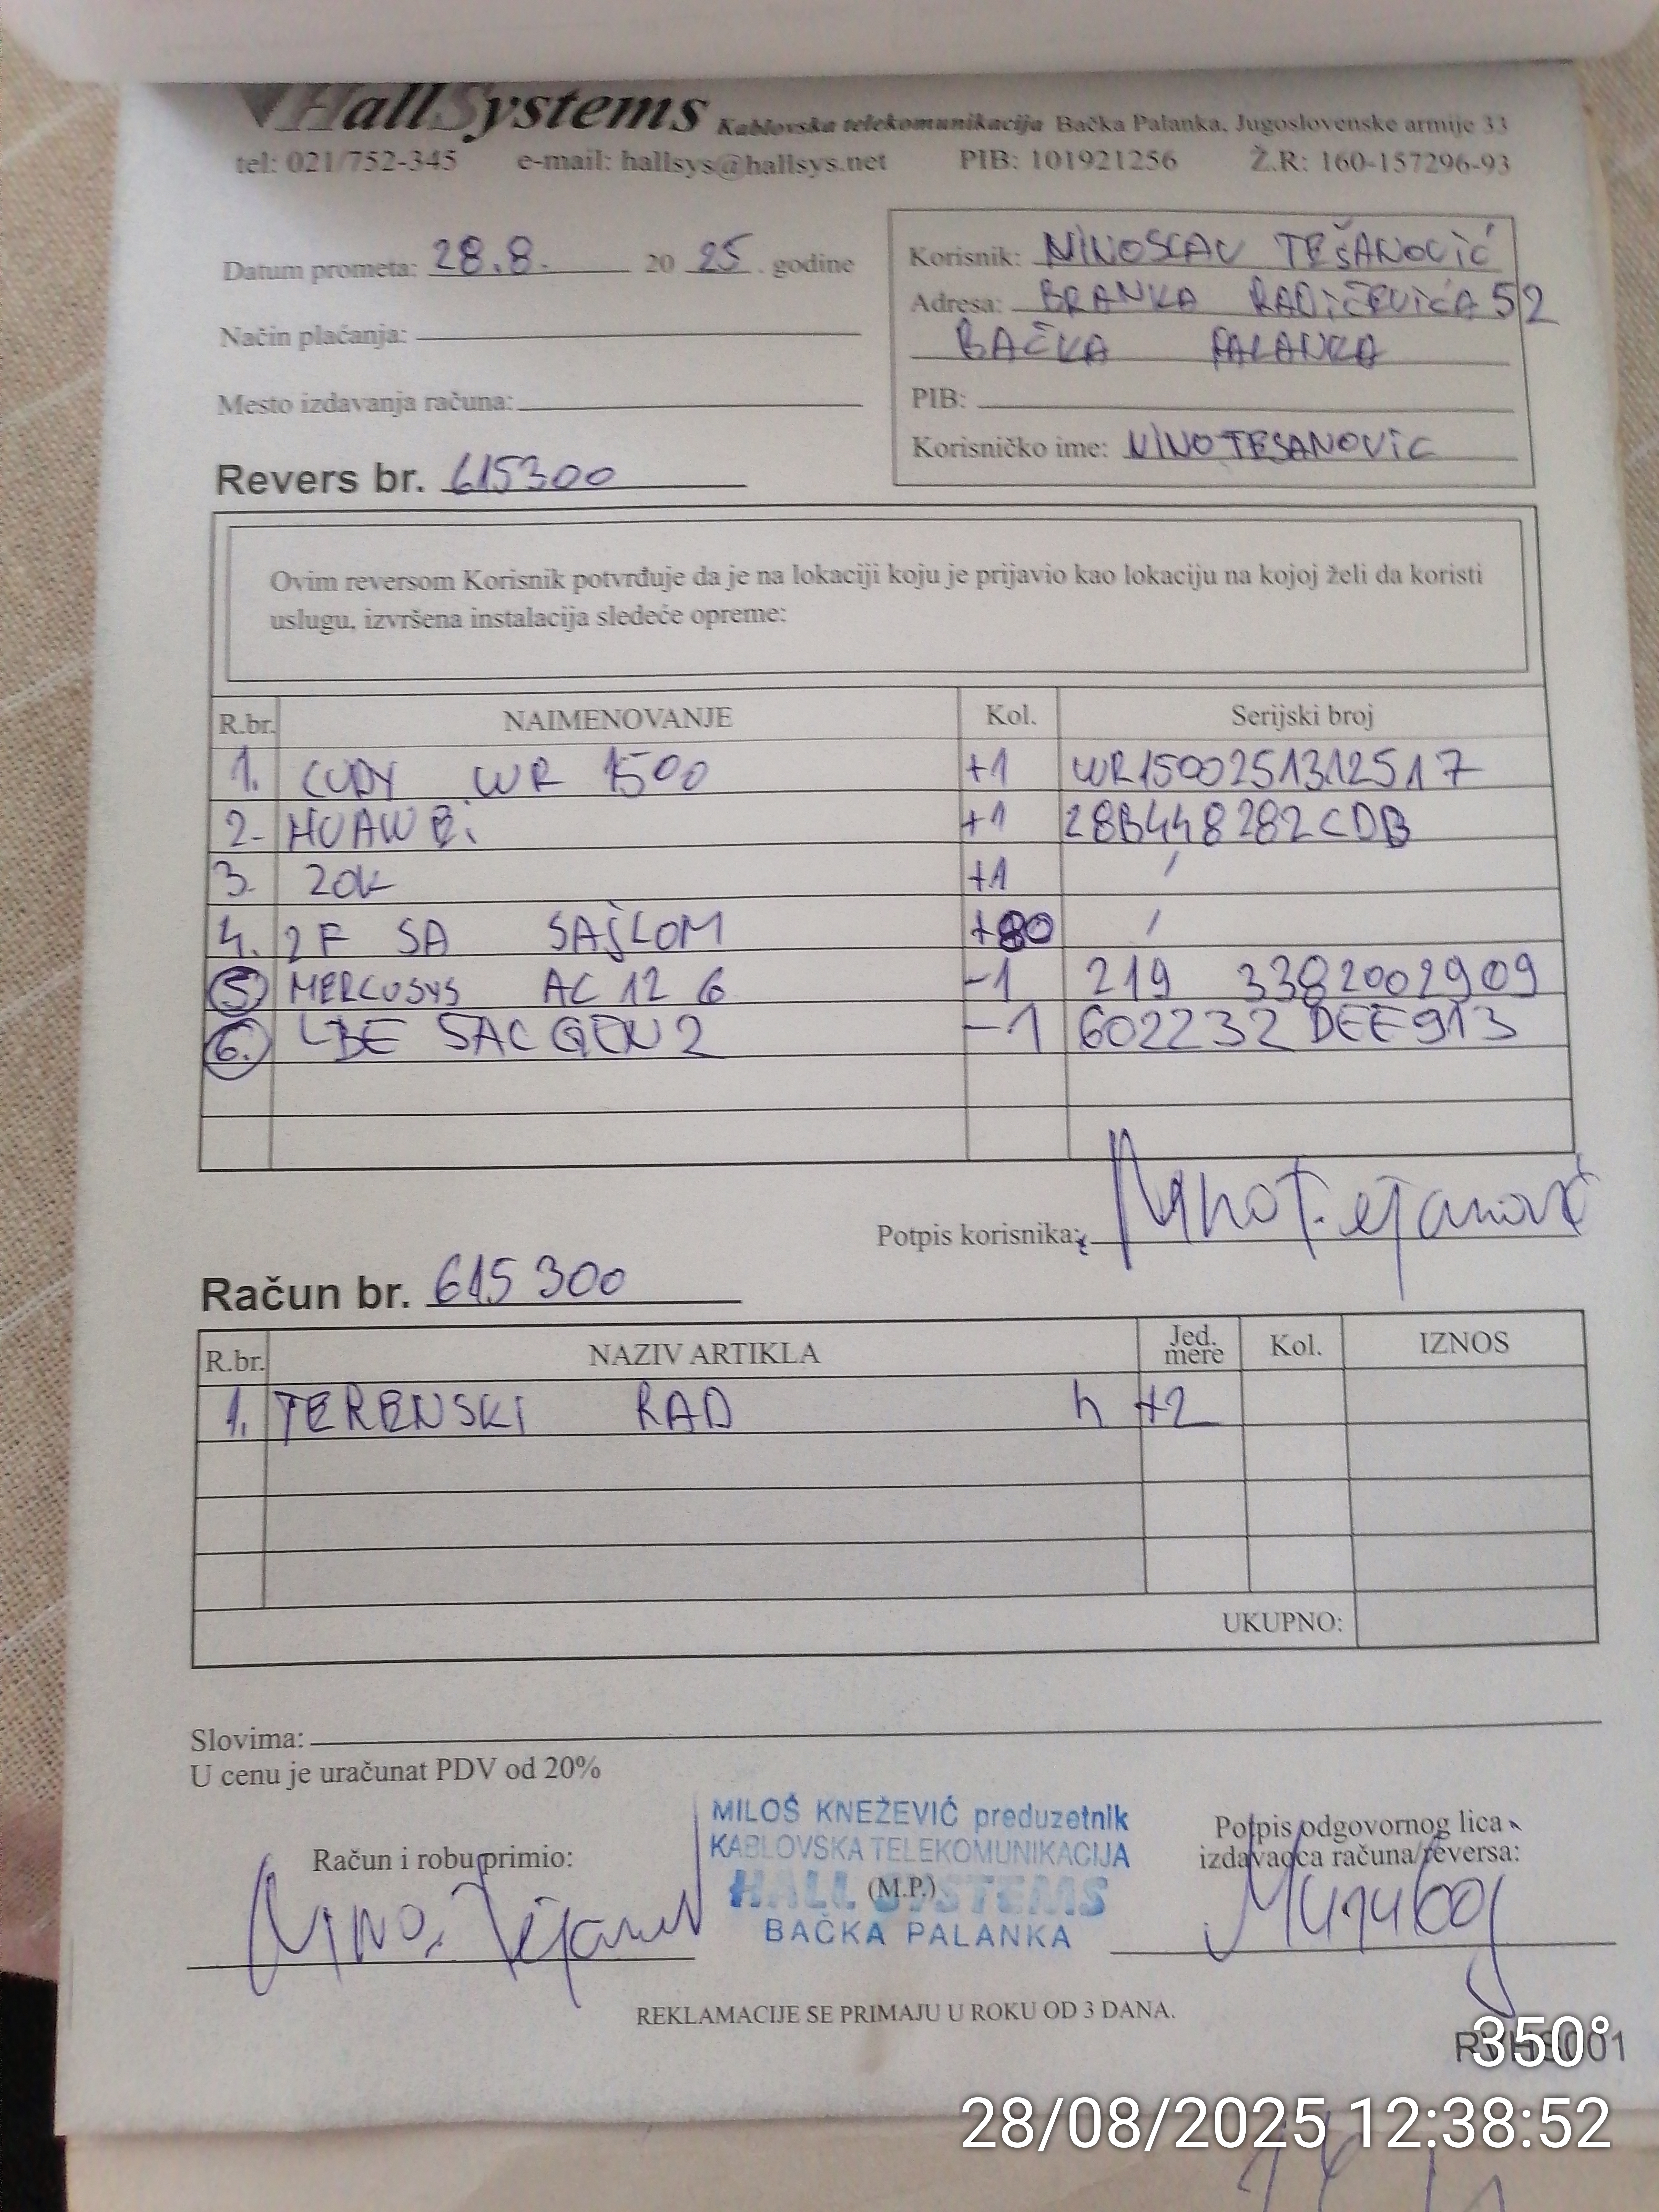 HallSystems Kablovska telekomunikacija Bačka Palanka, Jugoslovenske armije 33
tel: 021/752-345 e-mail: hallsys@hallsys.net PIB: 101921256 Ž.R: 160-157296-93
Datum prometa: 28.8. 20 25. godine
Način plaćanja:
Mesto izdavanja računa:
Korisnik: NINOSLAV TEŠANOVIĆ
Adresa: BRANKA RADIČEVIĆA 52
BAČKA PALANKA
PIB:
Korisničko ime: NINOTESANOVIC
Revers br. 615300
Ovim reversom Korisnik potvrđuje da je na lokaciji koju je prijavio kao lokaciju na kojoj želi da koristi
uslugu, izvršena instalacija sledeće opreme:
R.br. NAIMENOVANJE Kol. Serijski broj
1. CUDY WR 1500 +1 WR1500251312517
2. HUAWEi +1 28B448282CDB
3. ZOK +1 /
4. 2F SA SAJLOM +80 /
5. MERCUSYS AC 12 G -1 219 3382002909
6. LBE 5AC GEN 2 -1 602232DEE913
Potpis korisnika: Nino Tešanović
Račun br. 615300
R.br. NAZIV ARTIKLA Jed. mere Kol. IZNOS
1. TERENSKI RAD h +2
UKUPNO:
Slovima:
U cenu je uračunat PDV od 20%
Račun i robu primio:
MILOŠ KNEŽEVIĆ preduzetnik
KABLOVSKA TELEKOMUNIKACIJA
HALL SYSTEMS
(M.P.)
BAČKA PALANKA
Potpis odgovornog lica
izdavaoca računa/reversa:
REKLAMACIJE SE PRIMAJU U ROKU OD 3 DANA.
350°
28/08/2025 12:38:52